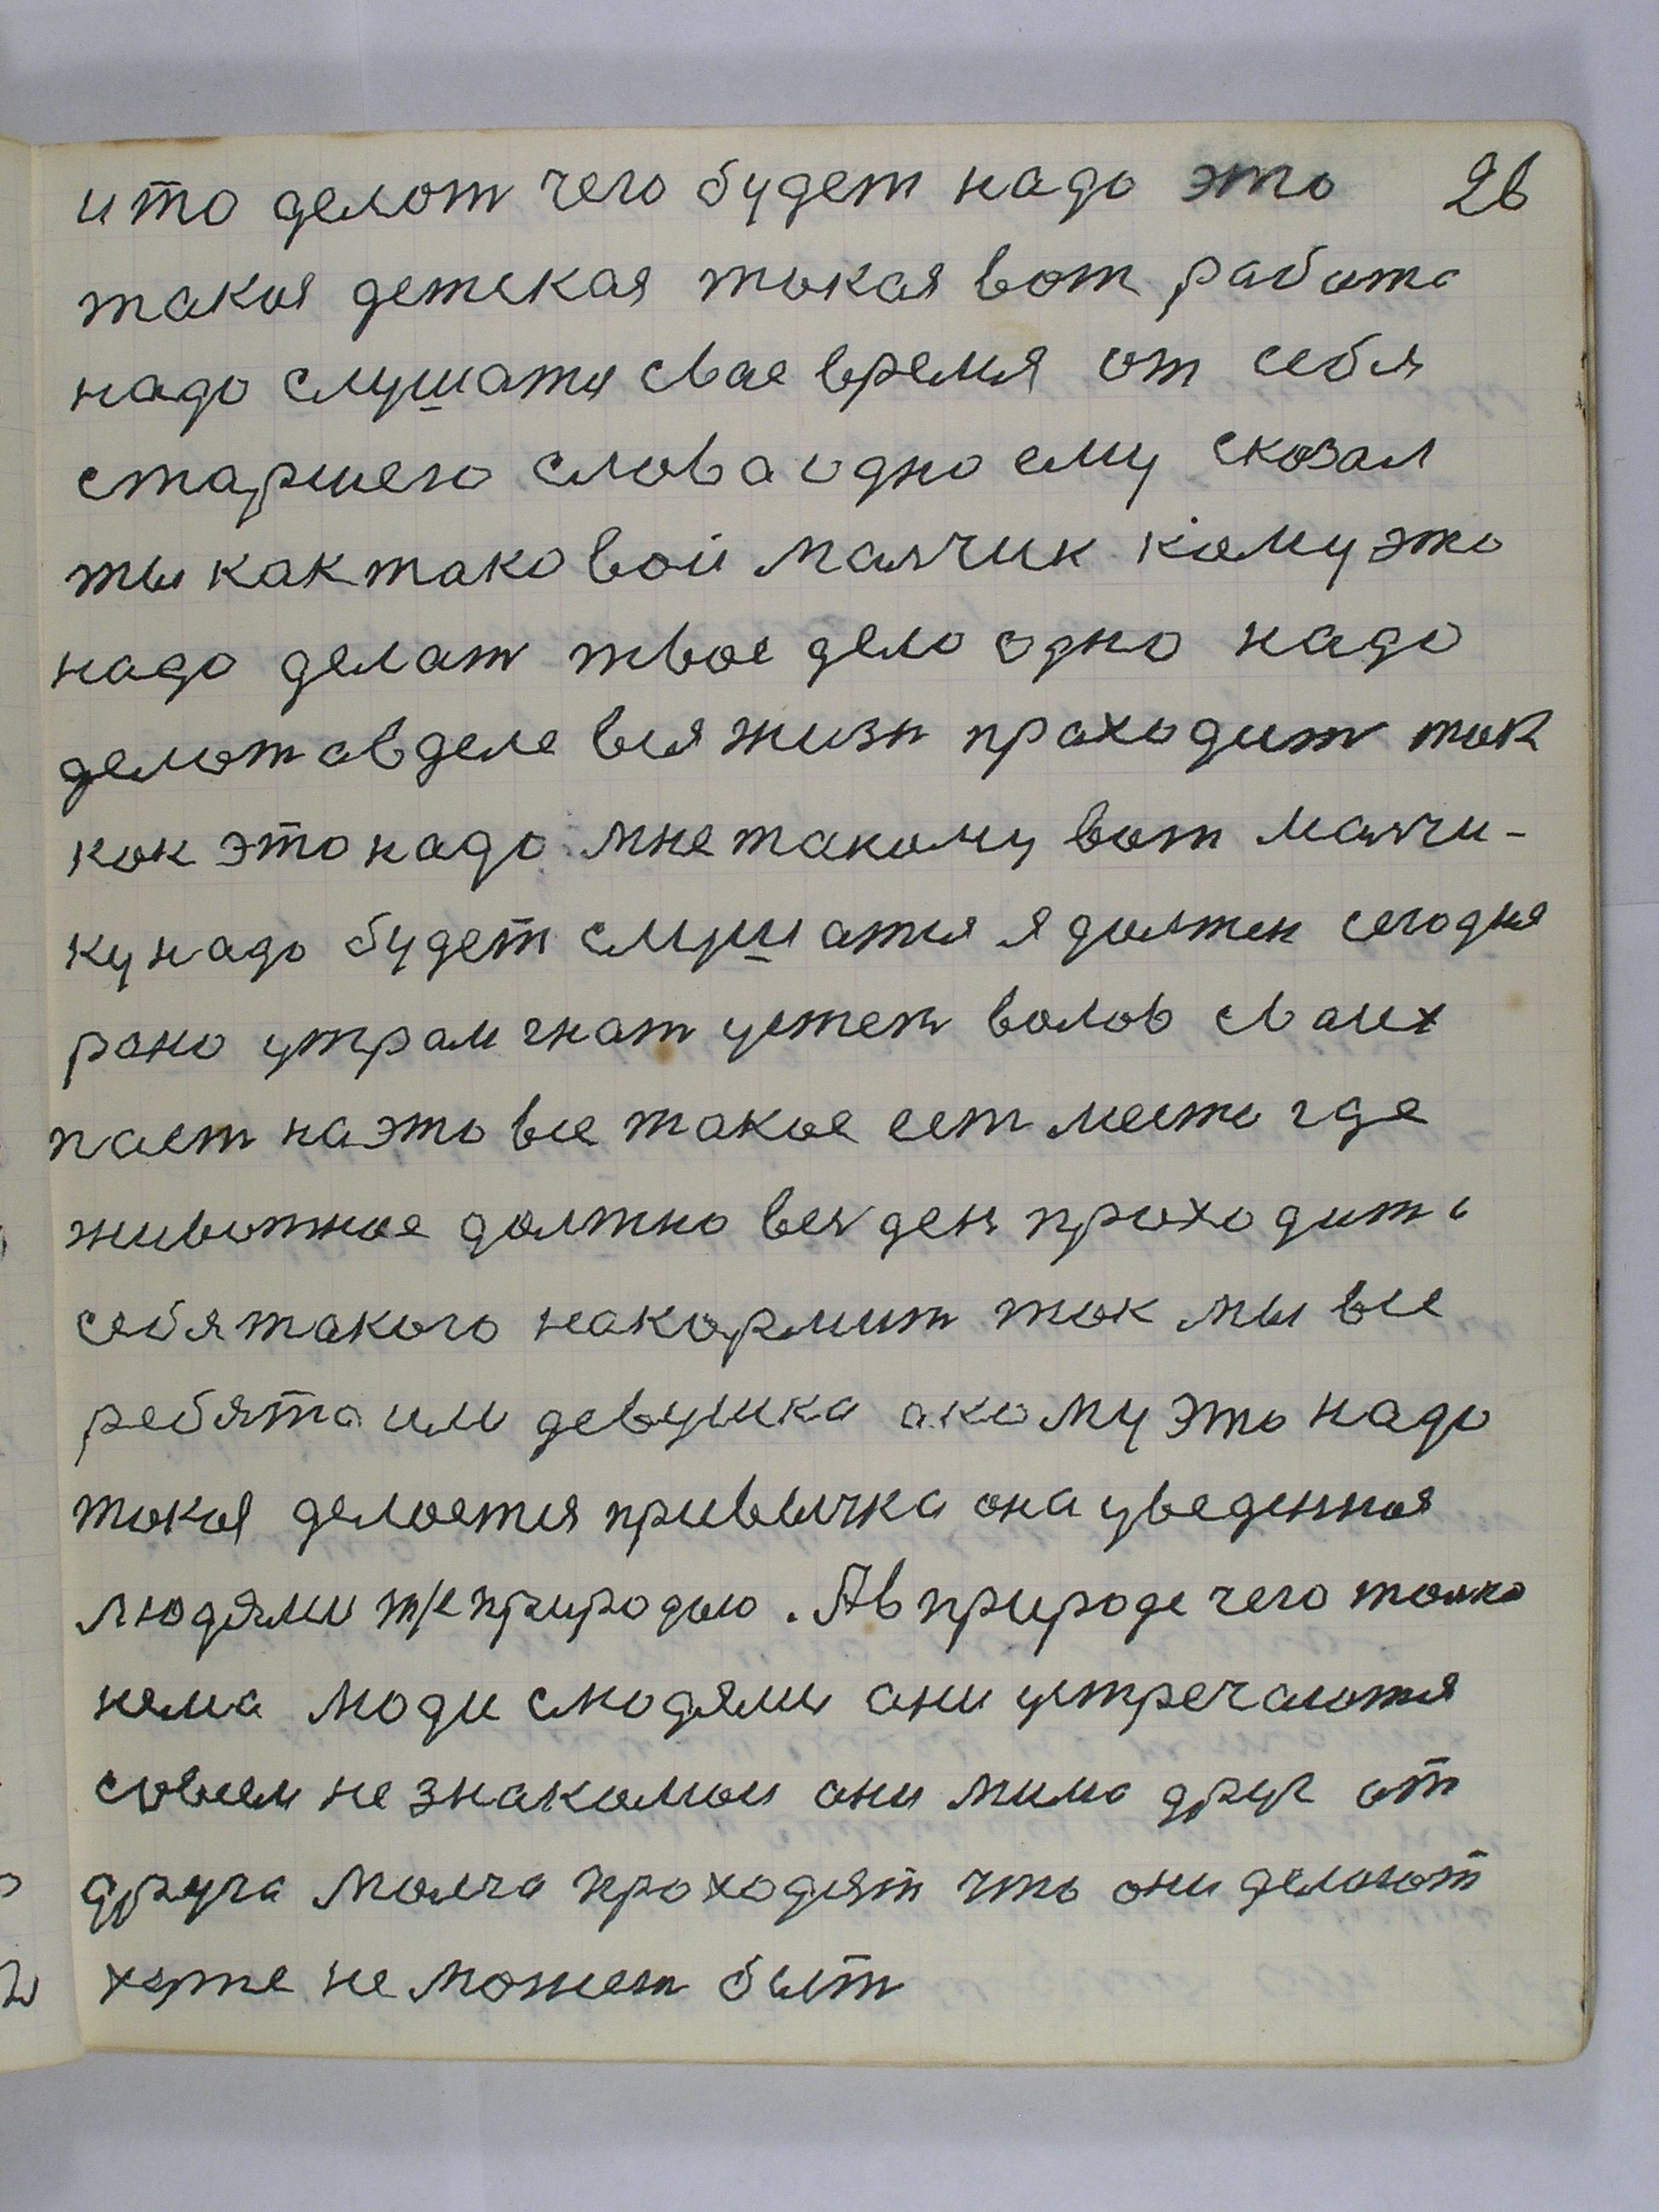 и то делот чего будет надо это 26
такая детская такая вот работа
надо слушатя свае время от себя
старшего слова одно ему сказал
ты как таковой малчик кому это
надо делат твое дело одно надо
делот а в деле вся жизн праходит так
как это надо мне такому вот малчи-
ку надо будет слушатся я должен сегодня
рано утрам гнат устеп валов сваих
паст на это все такое ест место где
животное должно вся ден праходит а
себя такого накормит так мы все
ребята или девушка а кому это надо
такая делается привычка она уведенная
людями т/к природаю. А в природе чего толко
нема люди с людями ани устречаются
совсем не знакомыи ани мимо друг от
друга молча проходят что они делают
хуже не можеть быт